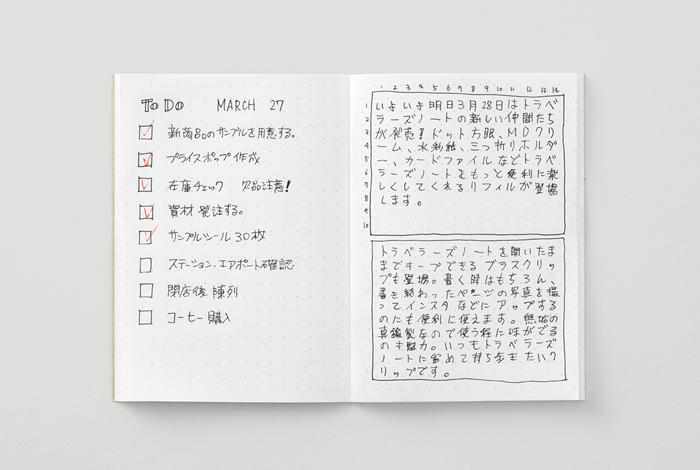 To Do MARCH 27
新商品のサンプルを用意する。
プライスポップ作成
在庫チェック 欠品注意!
資材 発注する。
サンプルシール 30枚
ステーション、エアポート確認
閉店後 陳列
コーヒー購入
1 2 3 4 5 6 7 8 9 10 11 12 13 14
1 いよいよ明日3月28日はトラベ
2 ラーズノートの新しい仲間たち
3 が発売!ドット方眼、MDクリ
4 ーム、水彩紙、三つ折りホルダ
5 ー、カードファイルなどトラベ
6 ラーズノートをもっと便利に楽
7 しくしてくれるリフィルが登場
8 します。
9
10
トラベラーズノートを開いたまま
までキープできるブラスクリッ
プも登場。書く時はもちろん、
書き終わったページの写真を撮
ってインスタなどにアップする
のにも便利に使えます。無垢の
真鍮製なので使う程に味がでる
のも魅力。いつもトラベラーズ
ノートに留めて
リップです。